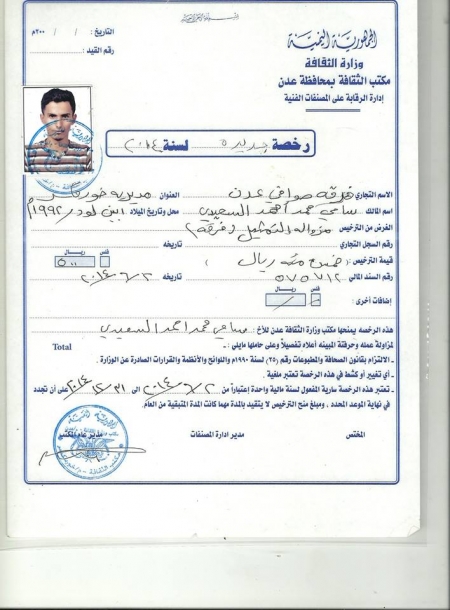 الجمهورية اليمنية
وزارة الثقافة
مكتب الثقافة بمحافظة عدن
إدارة الرقابة على المصنفات الفنية
التاريخ : / / ٢٠٠م
رقم القيد :
رخصة جديدة لسنة ٢٠١٤
الاسم التجاري فرقة صوافي عدن العنوان مديرية خور
اسم المالك سامي محمد أحمد السعيدي محل وتاريخ الميلاد أبين لودر ١٩٩٢م
الغرض من الترخيص مزاولة التمثيل (فرقة)
رقم السجل التجاري تاريخه
قيمة الترخيص ( خمسمئة ريال ) فلس ريال ٥٠٠
رقم السند المالي ٥٧٥٧١٢ تاريخه ٢٠١٤/٦/٢
إضافات أخرى : فلس ريال
هذه الرخصة يمنحها مكتب وزارة الثقافة عدن للأخ : سامي محمد احمد السعيدي
لمزاولة عمله وحرفته المبينه أعلاه تفصيلاً وعلى حاملها مايلي : Total
ـ الالتزام بقانون الصحافة والمطبوعات رقم (٢٥) لسنة ١٩٩٠م واللوائح والأنظمة والقرارات الصادرة عن الوزارة .
ـ أي تغيير أو كشط في هذه الرخصة تعتبر ملغية .
ـ تعتبر هذه الرخصة سارية المفعول لسنة مالية واحدة إعتباراً من ٢٠١٤/٦/٢ الى ٢٠١٤/١٢/٣١ على أن تجدد
في نهاية الموعد المحدد ، ومبلغ منح الترخيص لا يتقيد بالمدة مهما كانت المدة المتبقية من العام .
المختص مدير ادارة المصنفات مدير عام المكتب